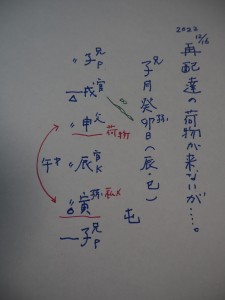 2023
12/16
再配達の荷物が来ないが…。
子月癸卯日(辰・巳)
孫
屯
兄
〃子P
官
戌
父
〃申
荷物
官
〃辰K
午
孫 私メ
寅
兄
一子P